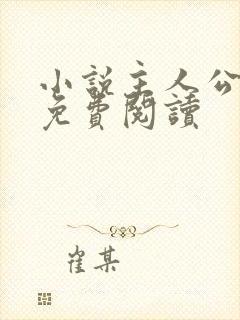 小說主人公
免費閱讀
崔某